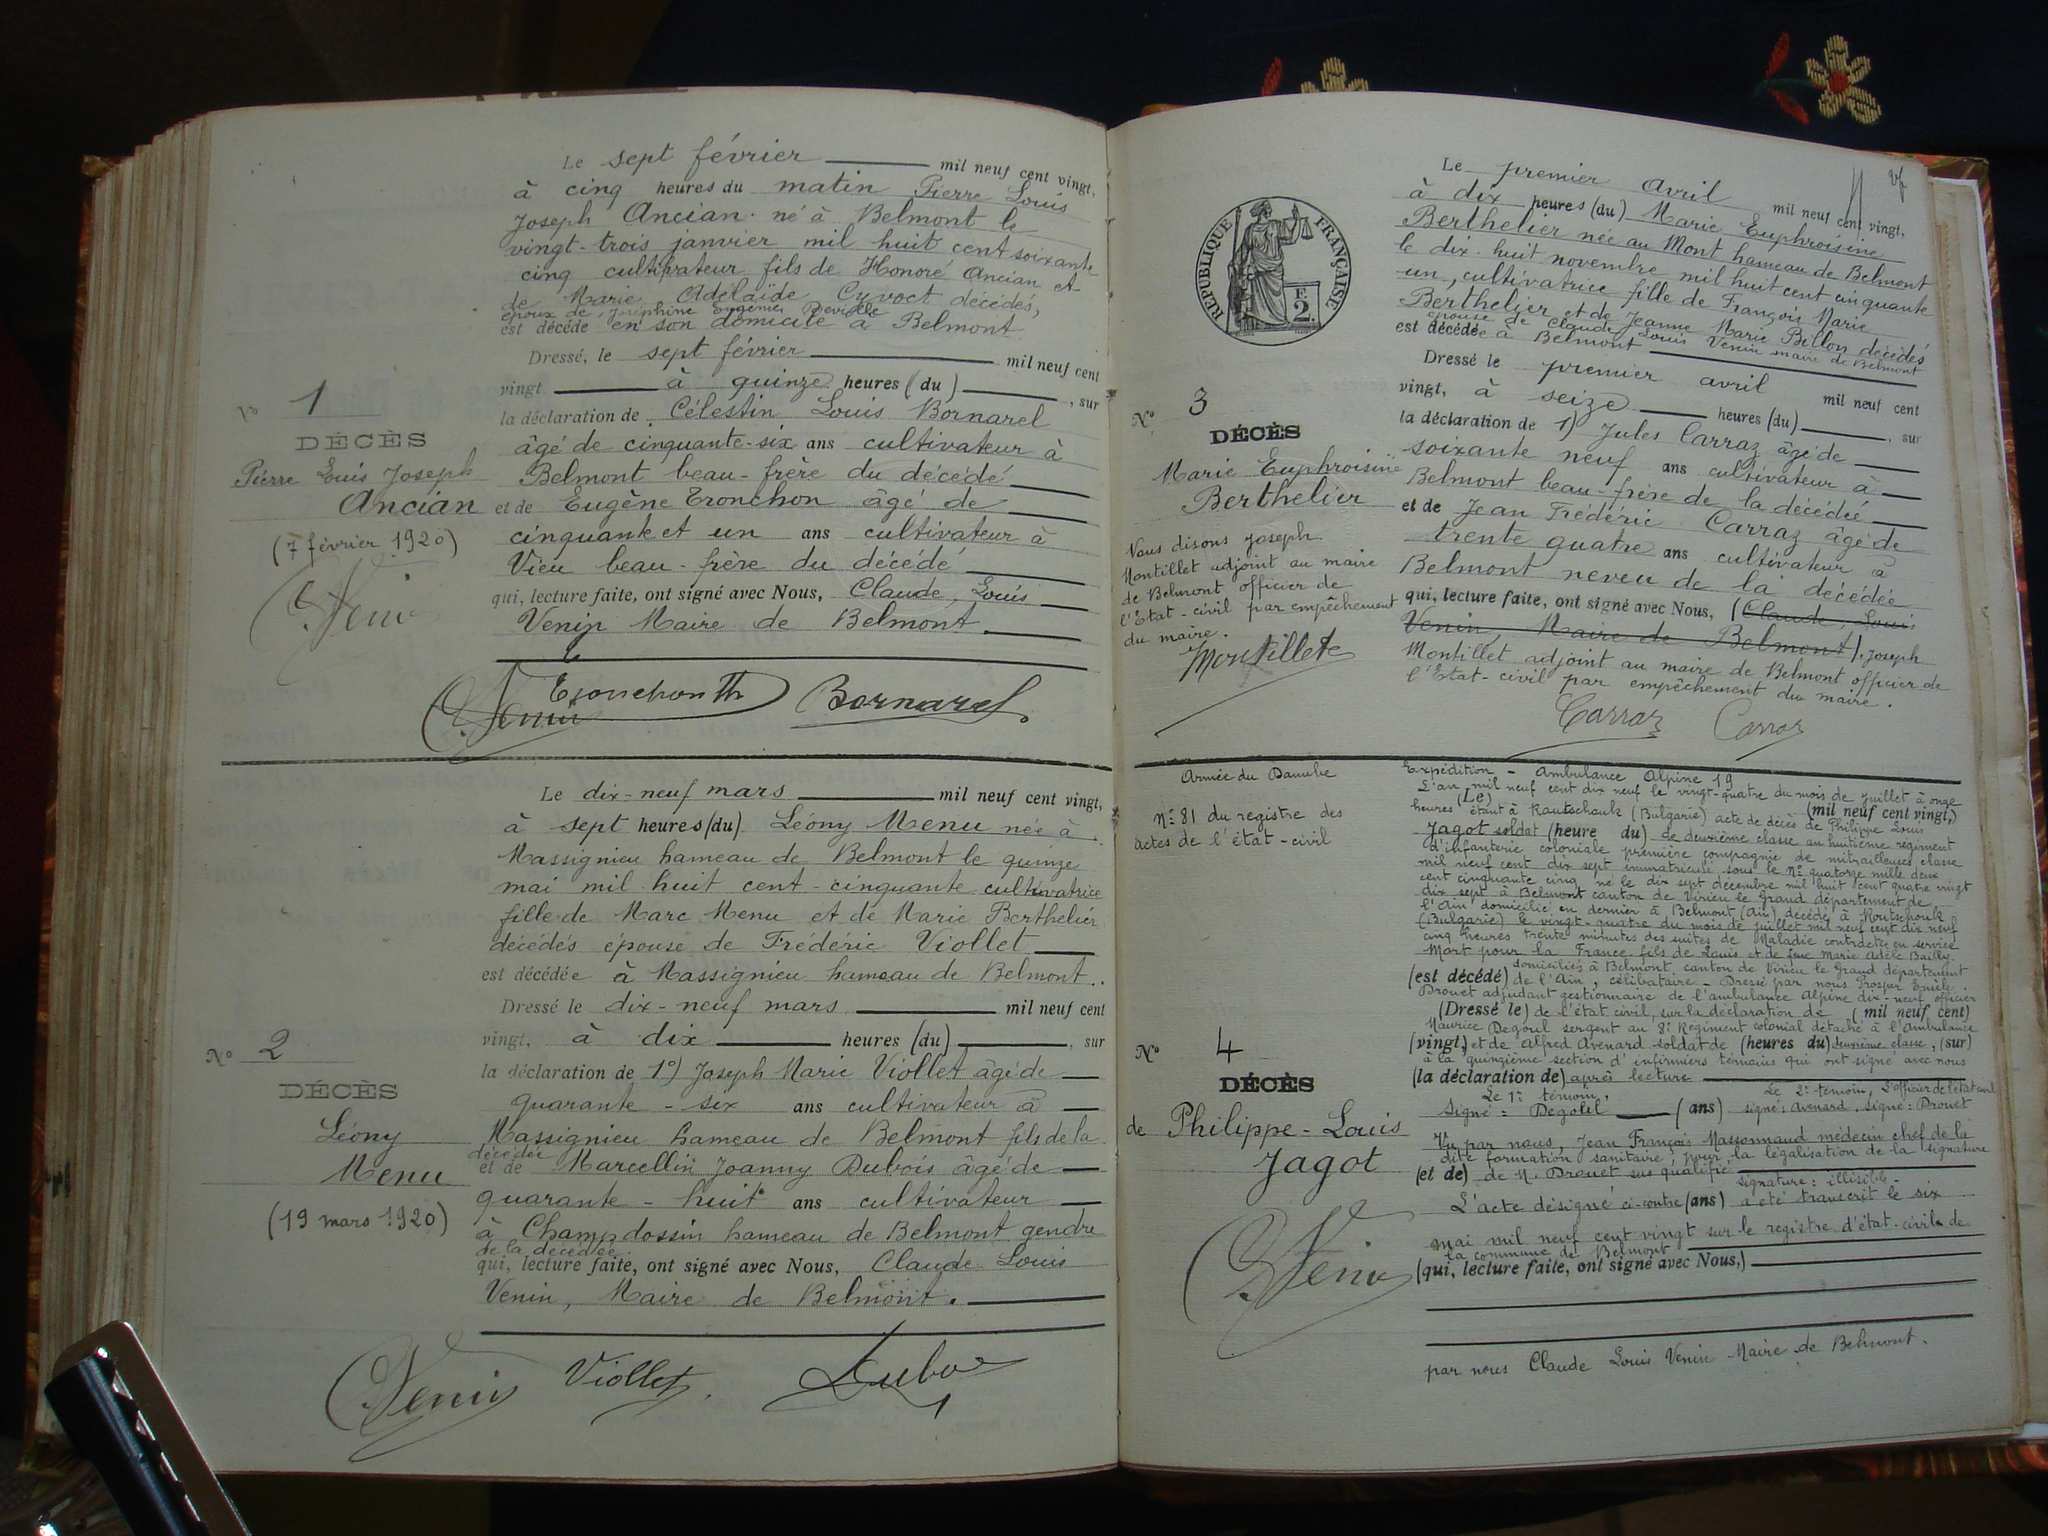 Le sept février mil neuf cent vingt,
à cinq heures du matin Pierre Louis
Joseph Ancian né à Belmont le
vingt-trois janvier mil huit cent soixante
cinq cultivateur fils de Honoré Ancian et
de Marie Adélaïde Cyvoct décédés,
époux de Joséphine Eugénie
est décédé en son domicile à Belmont
Dressé, le sept février mil neuf cent
vingt à quinze heures (du) , sur
la déclaration de Célestin Louis Bornarel
âgé de cinquante-six ans cultivateur à
Belmont beau-frère du décédé
et de Eugène Tronchon âgé de
cinquante et un ans cultivateur à
Vieu beau-frère du décédé
qui, lecture faite, ont signé avec Nous, Claude Louis
Venin Maire de Belmont.
No 1
DÉCÈS
Pierre Louis Joseph
Ancian
(7 février 1920)
Venin
Venin Tronchon Bornarel
Le dix-neuf mars mil neuf cent vingt,
à sept heures (du) Léony Menu née à
Massignieu hameau de Belmont le quinze
mai mil huit cent-cinquante cultivatrice
fille de Marc Menu et de Marie Berthelier
décédés épouse de Frédéric Viollet
est décédée à Massignieu hameau de Belmont..
Dressé le dix-neuf mars mil neuf cent
vingt, à dix heures (du) , sur
la déclaration de 1o) Joseph Marie Viollet âgé de
quarante-six ans cultivateur à
Massignieu hameau de Belmont fils de la
décédée
et de Marcellin Joanny Dubois âgé de
quarante-huit ans cultivateur
à Champdossin hameau de Belmont gendre
de la décédée
qui, lecture faite, ont signé avec Nous, Claude Louis
Venin, Maire de Belmont.
No 2
DÉCÈS
Léony
Menu
(19 mars 1920)
Venin Viollet Dubois
RÉPUBLIQUE FRANÇAISE
F. 2.
Le premier avril mil neuf cent vingt,
à dix heures (du) Marie Euphroisine
Berthelier née au Mont hameau de Belmont
le dix-huit novembre mil huit cent cinquante
un, cultivatrice fille de François Marie
Berthelier et de Jeanne Marie Billon décédés
épouse de Claude Louis Venin maire de Belmont
est décédée à Belmont
Dressé le premier avril mil neuf cent
vingt, à seize heures (du) , sur
la déclaration de 1) Jules Carraz âgé de
soixante neuf ans cultivateur à
Belmont beau-frère de la décédée
et de Jean Frédéric Carraz âgé de
trente quatre ans cultivateur à
Belmont neveu de la décédée
qui, lecture faite, ont signé avec Nous, (Claude Louis
Venin, Maire de Belmont). Joseph
Montillet adjoint au maire de Belmont officier de
l'Etat-civil par empêchement du maire.
Carraz Carraz
No 3
DÉCÈS
Marie Euphroisine
Berthelier
Nous disons Joseph
Montillet adjoint au maire
de Belmont officier de
l'Etat-civil par empêchement
du maire.
Montillet
Armée du Danube
No 81 du registre des
actes de l'état-civil
Expédition - Ambulance Alpine 19
L'an mil neuf cent dix neuf le vingt-quatre du mois de juillet à onze
(Le) (mil neuf cent vingt,)
heures étant à Routschouk (Bulgarie) acte de décès de Philippe Louis
Jagot soldat (heure du) de deuxième classe au huitième régiment
d'infanterie coloniale première compagnie de mitrailleuses classe
mil neuf cent dix sept immatriculé sous le No quatorze mille deux
cent cinquante cinq né le dix sept décembre mil huit cent quatre vingt
dix sept à Belmont canton de Virieu le Grand département de
l'Ain domicilié en dernier à Belmont (Ain) décédé à Routschouk
(Bulgarie) le vingt-quatre du mois de juillet mil neuf cent dix neuf
cinq heures trente minutes des suites de Maladie contractée en service
Mort pour la France fils de Louis et de feue Marie Adèle Bailly
domiciliés à Belmont canton de Virieu le Grand département
(est décédé) de l'Ain, célibataire - Dressé par nous Prosper Emile
Drouet adjudant gestionnaire de l'ambulance Alpine dix-neuf officier
(Dressé le) de l'état civil, sur la déclaration de (mil neuf cent)
Maurice Degoul sergent au 8e Régiment colonial détaché à l'Ambulance
(vingt,) et de Alfred Avenard soldat de (heures du) deuxième classe, (sur)
à la quinzième section d'infirmiers témoins qui ont signé avec nous
(la déclaration de) après lecture
Le 1er témoin, Le 2e témoin, L'officier de l'état civil
Signé: Degoul (ans) signé: Avenard. Signé: Drouet
Vu par nous, Jean François Massonnaud médecin chef de la
dite formation sanitaire pour la légalisation de la signature
(et de) de M. Drouet sus qualifié
signature: illisible.
L'acte désigné ci-contre (ans) a été transcrit le six
mai mil neuf cent vingt sur le registre d'état-civil de
la commune de Belmont
(qui, lecture faite, ont signé avec Nous,)
par nous Claude Louis Venin Maire de Belmont.
No 4
DÉCÈS
de Philippe-Louis
Jagot
Venin